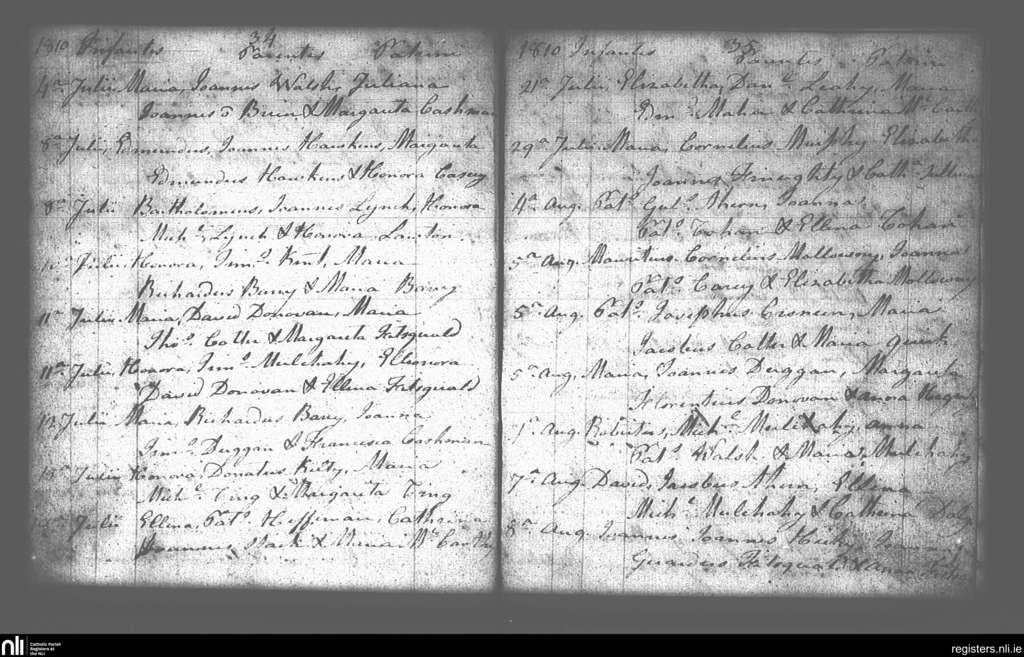 34
1810 Infantes Parentes Patrini
4a. Julii Maria, Joannes Walsh, Juliana
Joannes ō Brien, & Margarita Cashman
Julii, Edmundus, Joannes Hawkins, Margarita
Edmundus Hawkins & Honora Casey
8a. Julii Bartholomeus, Joannes Lynch, Honora
Michl. Lynch & Honora Lawton
Julii Honora, Kent, Maria
Richardus Barry & Maria Barry
11a. Julii Maria, David Donovan, Maria
Thos. Cotter & Margarita Fitsgerald
11a. Julii, Honora, Mulchahy, Elleonora
David Donovan & Ellena Fitsgerald
13. Julii Maria, Richardus Barry, Joanna
Duggan & Francisca Cashman
Julii Honora Donatus Maria
Michl. & Margarita
Julii Ellena, Patk. Heffernan, Catherina
Joannes Stack & Maria McCarthy
35
1810 Infantes Parentes Patrini
21a. Julii, Elizabetha, Danl. Leahy, Maria
Maher & Catherina
29a. Julii Maria, Cornelius Murphy Elizabetha
Joannes & Cath.
4a. Aug. Pat. Ahern, Joanna
Pat. Cohan & Ellena Cohan
5a. Aug. Mauritius, Cornelius Mollowny, Joanna
Pat. Carey & Elizabetha Mollowny
5a. Aug. Pat. Josephus Cronin, Maria
Jacobus Cotter & Maria Quirk
5a. Aug. Maria, Joannes Duggan, Margarita
Florentius Donovan & anora
Aug. Robertus, Michl. Mulchahy, anna
Pat. Walsh & Maria Mulchahy
7a. Aug. David, Jacobus Ahern, Ellena
Michl. Mulchahy & Catherina
8a. Aug. Joannes, Joannes
Gerardus Fitsgerald &
nli
Catholic Parish
Registers at
the NLI
registers.nli.ie